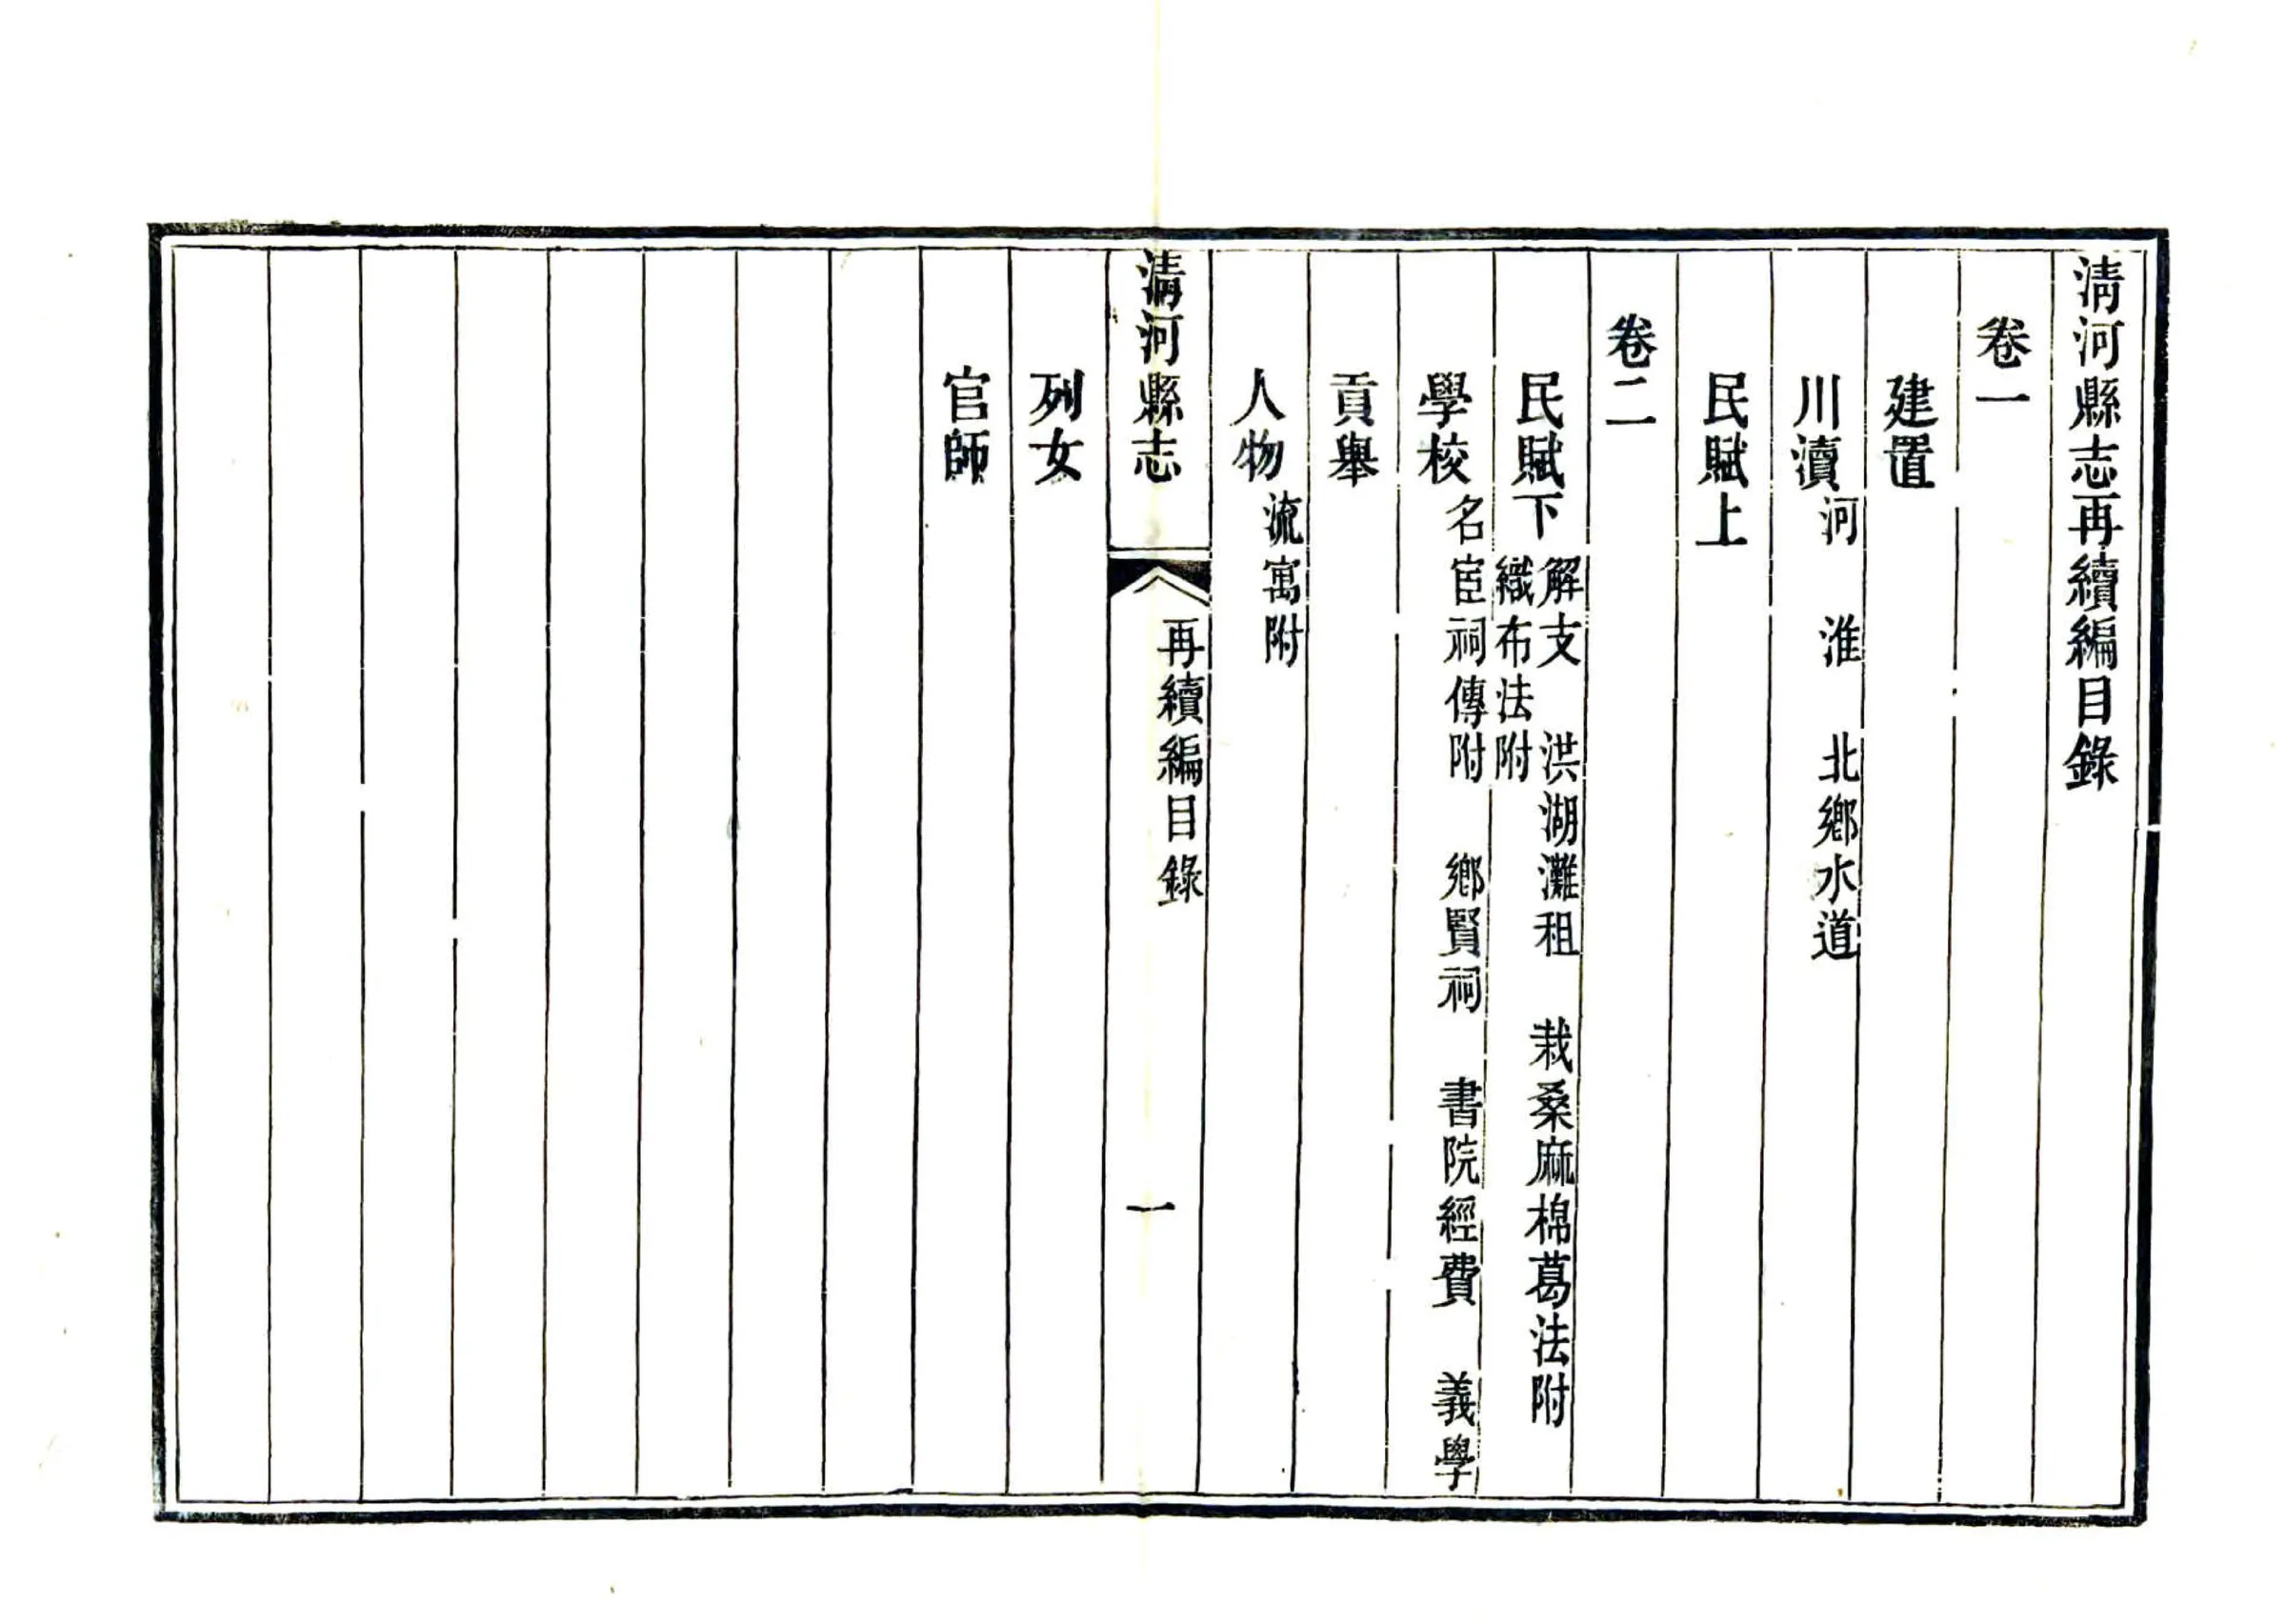 淸河縣志再續編目錄
卷一
建置
川瀆河　淮　北鄉水道
民賦上
卷二
民賦下解支　洪湖灘租　栽桑麻棉葛法附
織布法附
學校名宦祠傳附　鄉賢祠　書院經費　義學
貢舉
人物流寓附
淸河縣志　再續編目錄　一
列女
官師